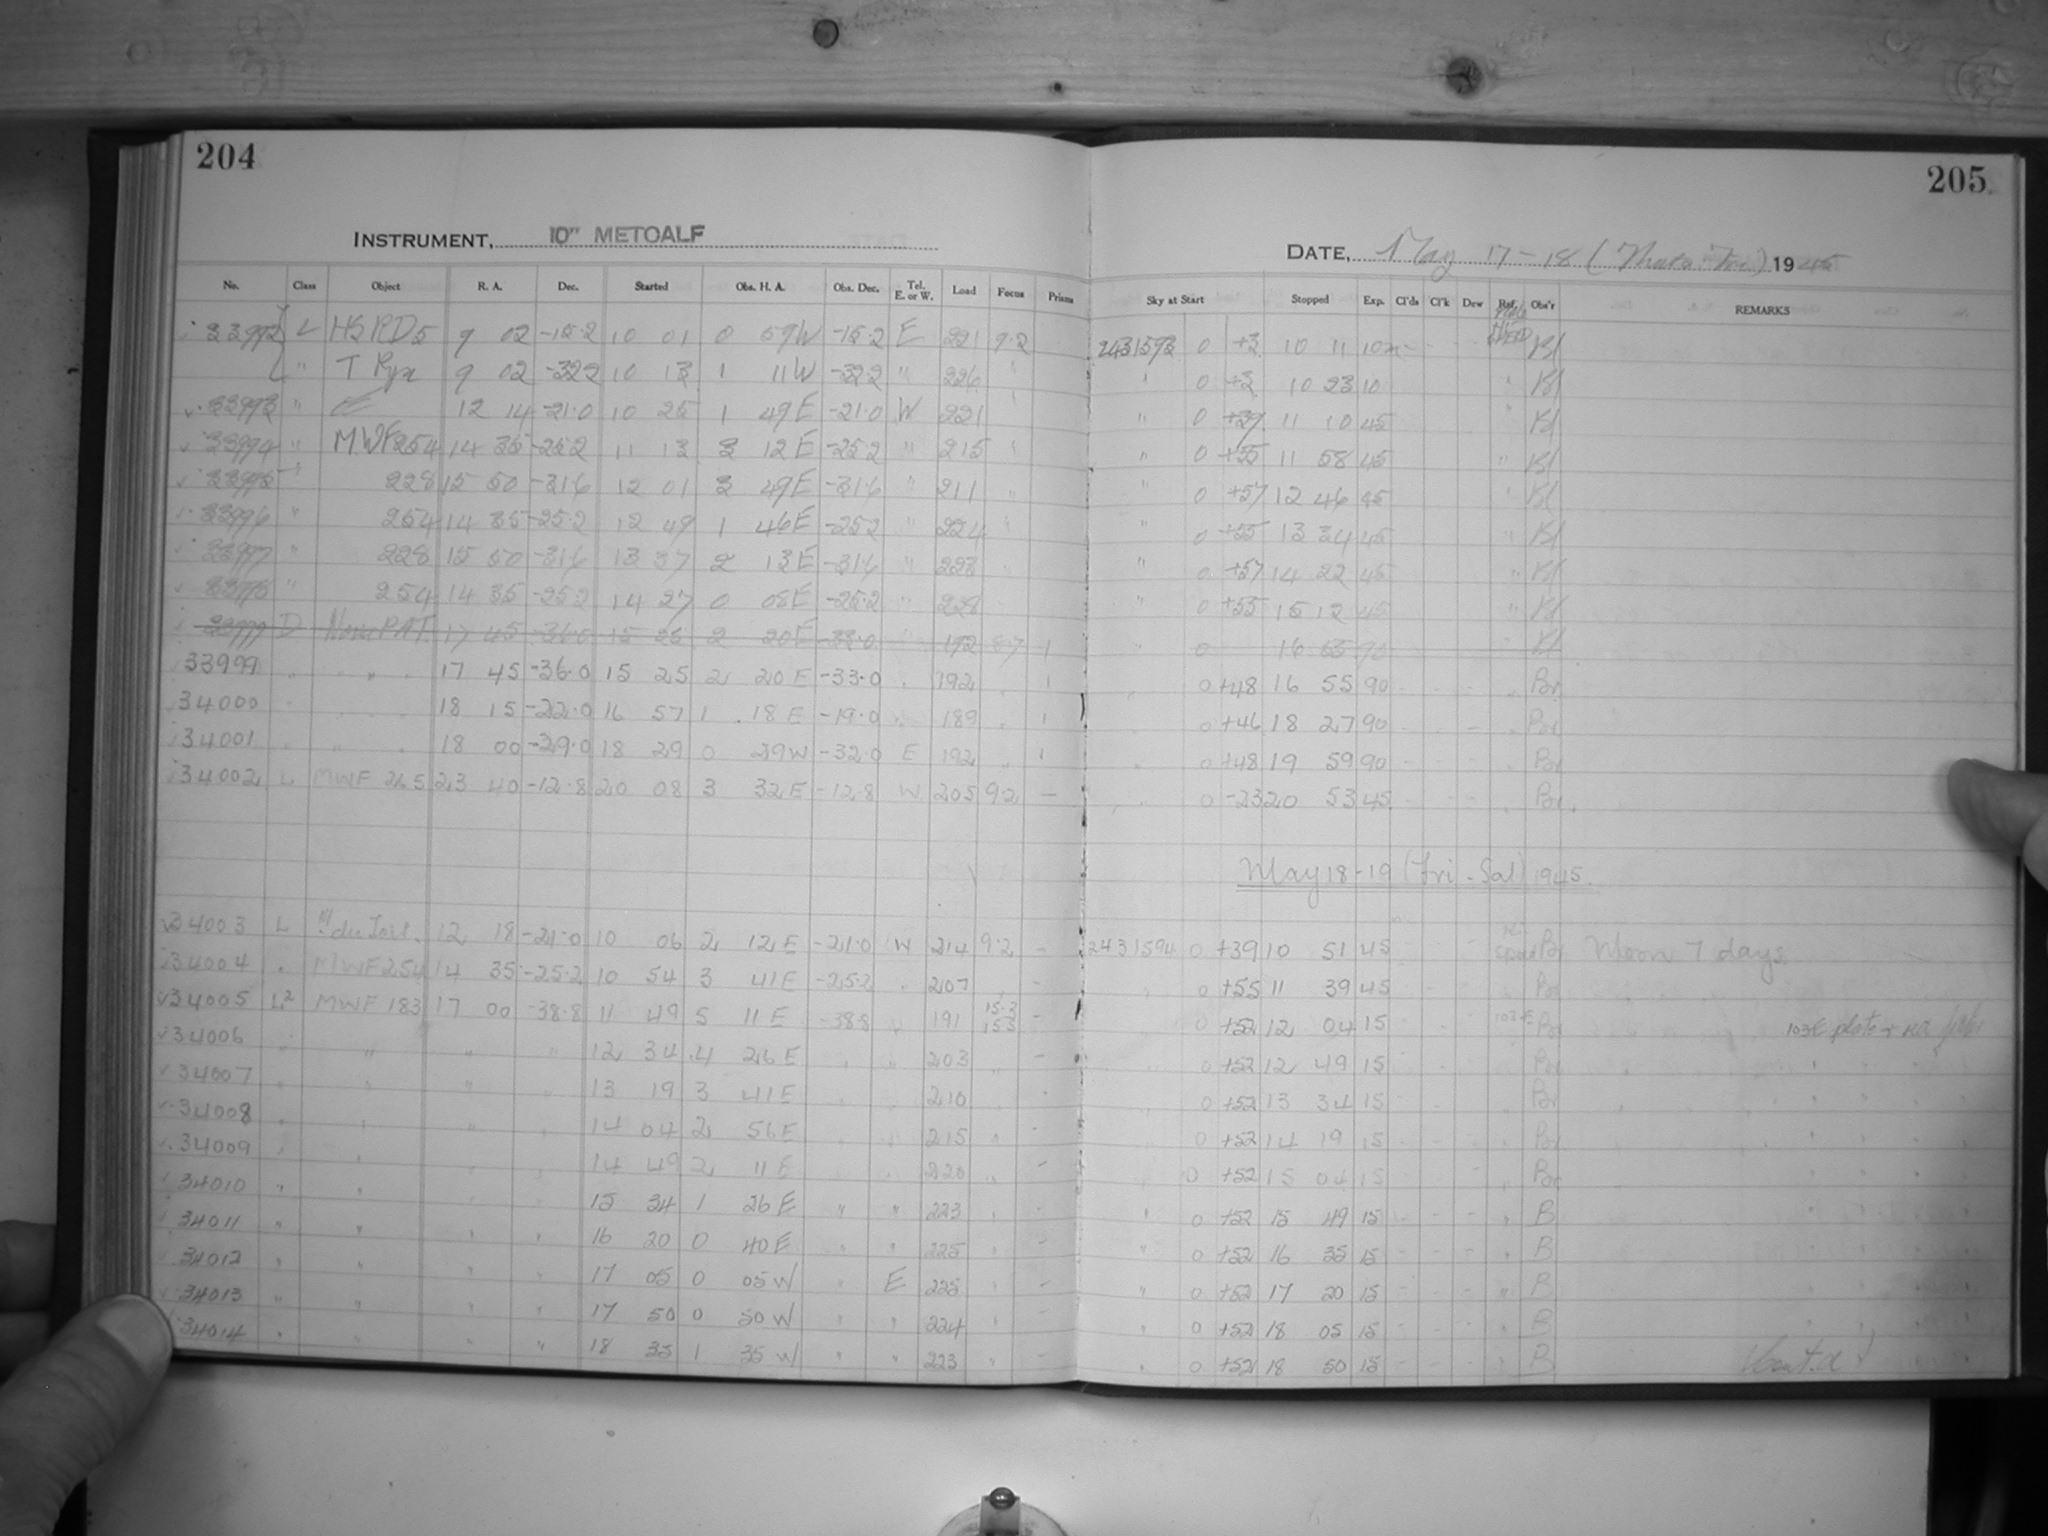 204
205
INSTRUMENT, 10" METCALF
DATE, May 17-18 (Thurs-Fri) 1945
No. Class Object R. A. Dec. Started Obs. H. A. Obs. Dec. Tel. E. or W. Load Focus Prisms Sky at Start Stopped Exp. Cl'ds Cl'k Dew Ref. Obs'r REMARKS
33992 L 9 02 -15.2 10 01 0 59W -15.2 E 221 9.2 2431593 0 +3 10 11 10m Bl
" T Pyx 9 02 -32.2 10 13 1 11W -32.2 " 226 " " 0 +3 10 23 10 " Bl
33993 " 12 14 -21.0 10 25 1 49E -21.0 W 221 " " 0 +39 11 10 45 Bl
33994 " MWF254 14 35 -25.2 11 13 3 12E -25.2 " 215 " " 0 +55 11 58 45 " Bl
33995 " 228 15 50 -31.6 12 01 3 49E -31.6 " 211 " " 0 +57 12 46 45 " Bl
33996 " 254 14 35 -25.2 12 49 1 46E -25.2 " 224 " " 0 +55 13 34 45 " Bl
33997 " 228 15 50 -31.6 13 37 2 13E -31.6 " 223 " " 0 +57 14 22 45 " Bl
33998 " 254 14 35 -25.2 14 27 0 08E -25.2 " 228 " 0 +55 15 12 45 " Bl
33999 D Nova PAT. 17 45 -36.0 15 25 2 20E -33.0 " 192 8.7 1 " 0 16 55 90 " Bl
33999 " " " 17 45 -36.0 15 25 2 20E -33.0 " 192 " 1 " 0 +48 16 55 90 - - - " Br
34000 " " " 18 15 -22.0 16 57 1 18E -19.0 " 189 " 1 " 0 +46 18 27 90 - - - " Br
34001 " " " 18 00 -29.0 18 29 0 29W -32.0 E 192 " 1 " 0 +48 19 59 90 " Br
34002 L MWF 265 23 40 -12.8 20 08 3 32E -12.8 W 205 9.2 - " 0 -23 20 53 45 - - - " Br.
May 18-19 (Fri-Sat) 1945.
34003 L 12 18 -21.0 10 06 2 12E -21.0 W 214 9.2 - 2431594 0 +39 10 51 45 - - - Br Moon 7 days
34004 " MWF254 14 35 -25.2 10 54 3 41E -25.2 " 207 " - " 0 +55 11 39 45 Br
34005 L2 MWF 183 17 00 -38.8 11 49 5 11E -38.8 " 191 15.3 - " 0 +52 12 04 15 103E Br 103E plate +
34006 " " " " 12 34 4 26E " " 203 " - " 0 +52 12 49 15 Br " "
34007 " " " " 13 19 3 41E " " 210 " - " 0 +52 13 34 15 Br " "
34008 " " " " 14 04 2 56E " " 215 " - " 0 +52 14 19 15 Br " "
34009 " " " " 14 49 2 11E " " 220 " - " 0 +52 15 04 15 " Br " "
34010 " " " " 15 34 1 26E " " 223 " - " 0 +52 15 49 15 - - - " B " "
34011 " " " " 16 20 0 40E " " 225 " - " 0 +52 16 35 15 - - - " B " "
34012 " " " " 17 05 0 05W " E 225 " - " 0 +52 17 20 15 - - - " B " "
34013 " " " " 17 50 0 50W " " 224 " - " 0 +52 18 05 15 - - - " B " "
34014 " " " " 18 35 1 35W " " 223 " - " 0 +52 18 50 15 - - - " B